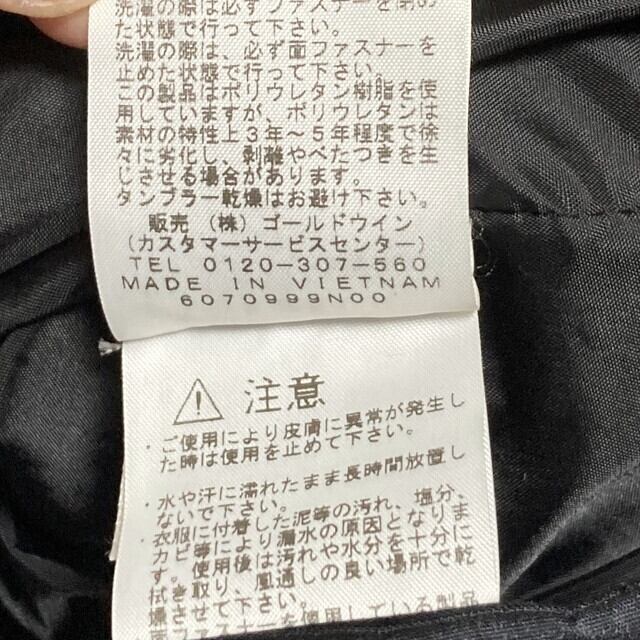 洗濯の際は必ずファスナーを閉め
た状態で行って下さい。
洗濯の際は、必ず面ファスナーを
止めた状態で行って下さい。
この製品はポリウレタン樹脂を使
用していますが、ポリウレタンは
素材の特性上3年～5年程度で徐
々に劣化し、剥離やべたつきを生
じさせる場合があります。
タンブラー乾燥はお避け下さい。
販売 (株) ゴールドウイン
(カスタマーサービスセンター)
TEL 0120-307-560
MADE IN VIETNAM
6070999N00
注意
・ご使用により皮膚に異常が発生し
た時は使用を止めて下さい。
・水や汗に濡れたまま長時間放置し
ないで下さい。
・衣服に付着した泥等の汚れ、塩分、
カビ等により漏水の原因となりま
す。使用後は汚れや水分を十分に
拭き取り、風通しの良い場所で乾
燥させて下さい。
・面ファスナーを使用している製品